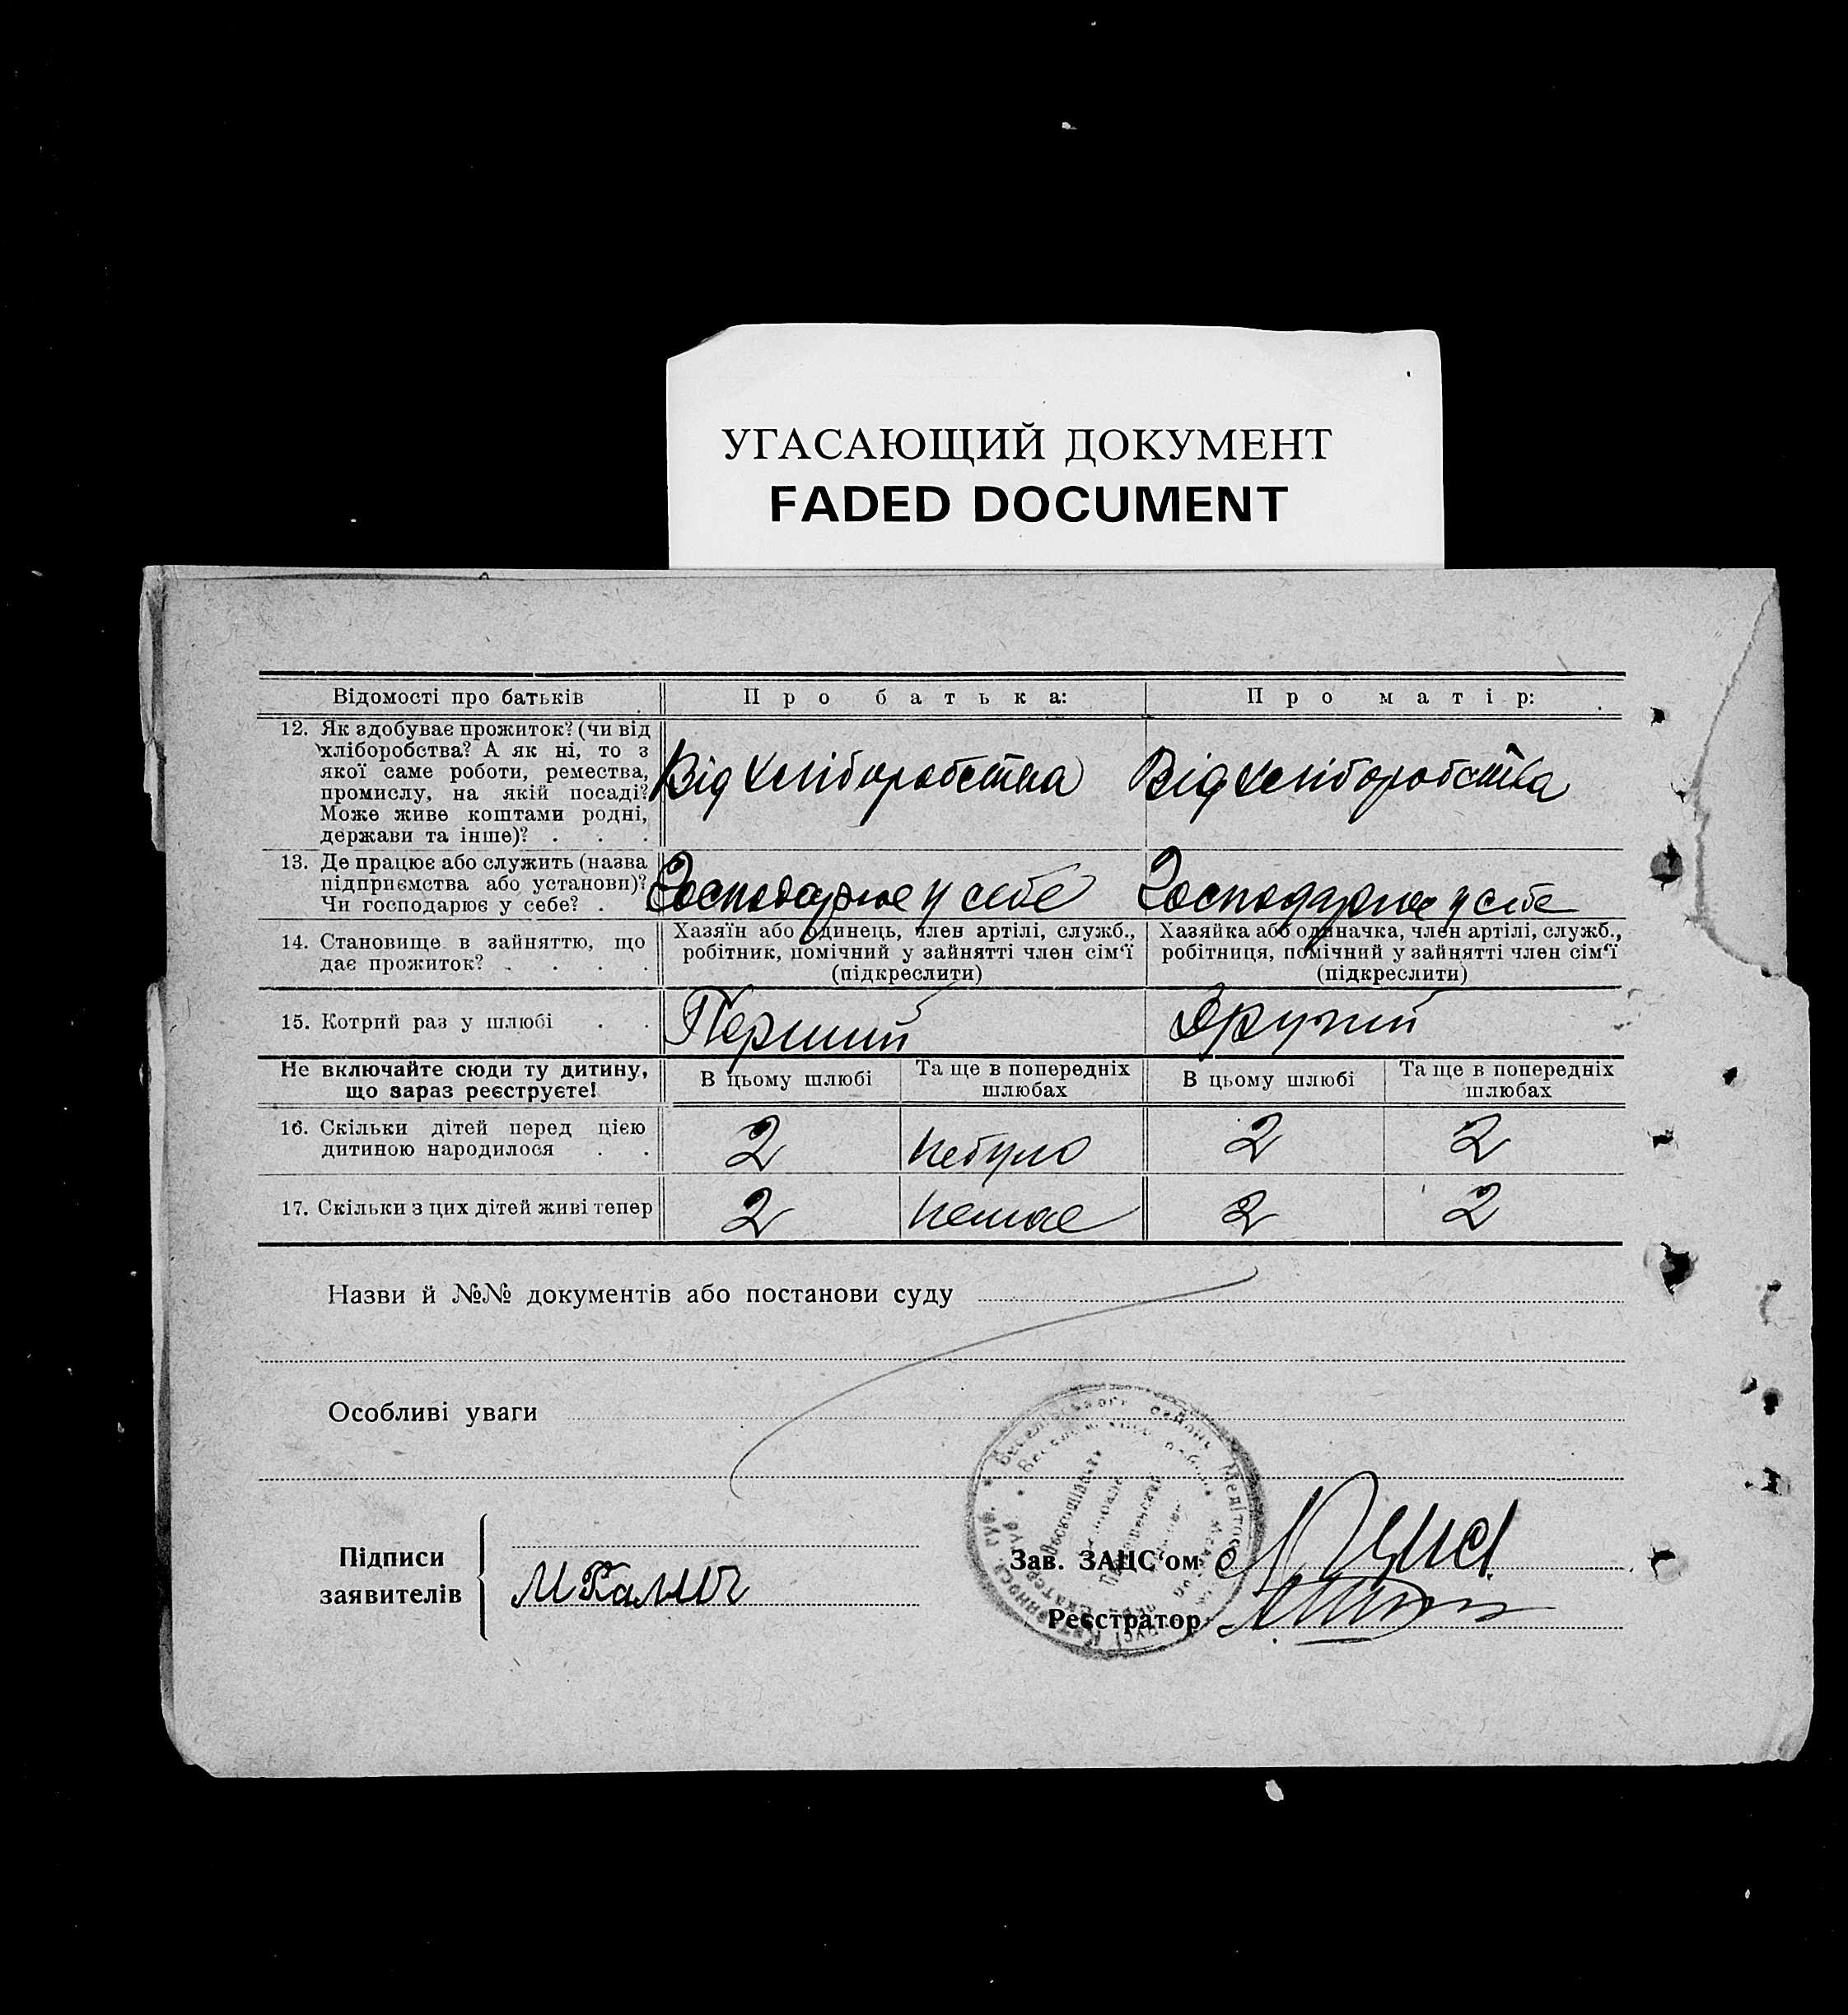 УГАСАЮЩИЙ ДОКУМЕНТ
FADED DOCUMENT
Відомості про батьків
Про батька:
Про матір:
12. Як здобуває прожиток? (чи від
хліборобства? А як ні, то з
якої саме роботи, ремества,
промислу, на якій посаді?
Може живе коштами родні,
держави та інше)? . . .
Від хліборобства
Від хліборобства
13. Де працює або служить (назва
підприємства або установи)?
Чи господарює у себе? .
Господарює у себе
Господарює у себе
14. Становище в зайняттю, що
дає прожиток? . . . .
Хазяїн або одинець, член артілі, служб.,
робітник, помічний у зайнятті член сім'ї
(підкреслити)
Хазяйка або одиначка, член артілі, служб.,
робітниця, помічний у зайнятті член сім'ї
(підкреслити)
15. Котрий раз у шлюбі . .
Перший
Другий
Не включайте сюди ту дитину,
що зараз реєструєте!
В цьому шлюбі
Та ще в попередніх
шлюбах
В цьому шлюбі
Та ще в попередніх
шлюбах
16. Скільки дітей перед цією
дитиною народилося . .
2
небуло
2
2
17. Скільки з цих дітей живі тепер
2
немає
2
2
Назви й №№ документів або постанови суду
Особливі уваги
Підписи
заявителів
Зав. ЗАЦС'ом
Реєстратор